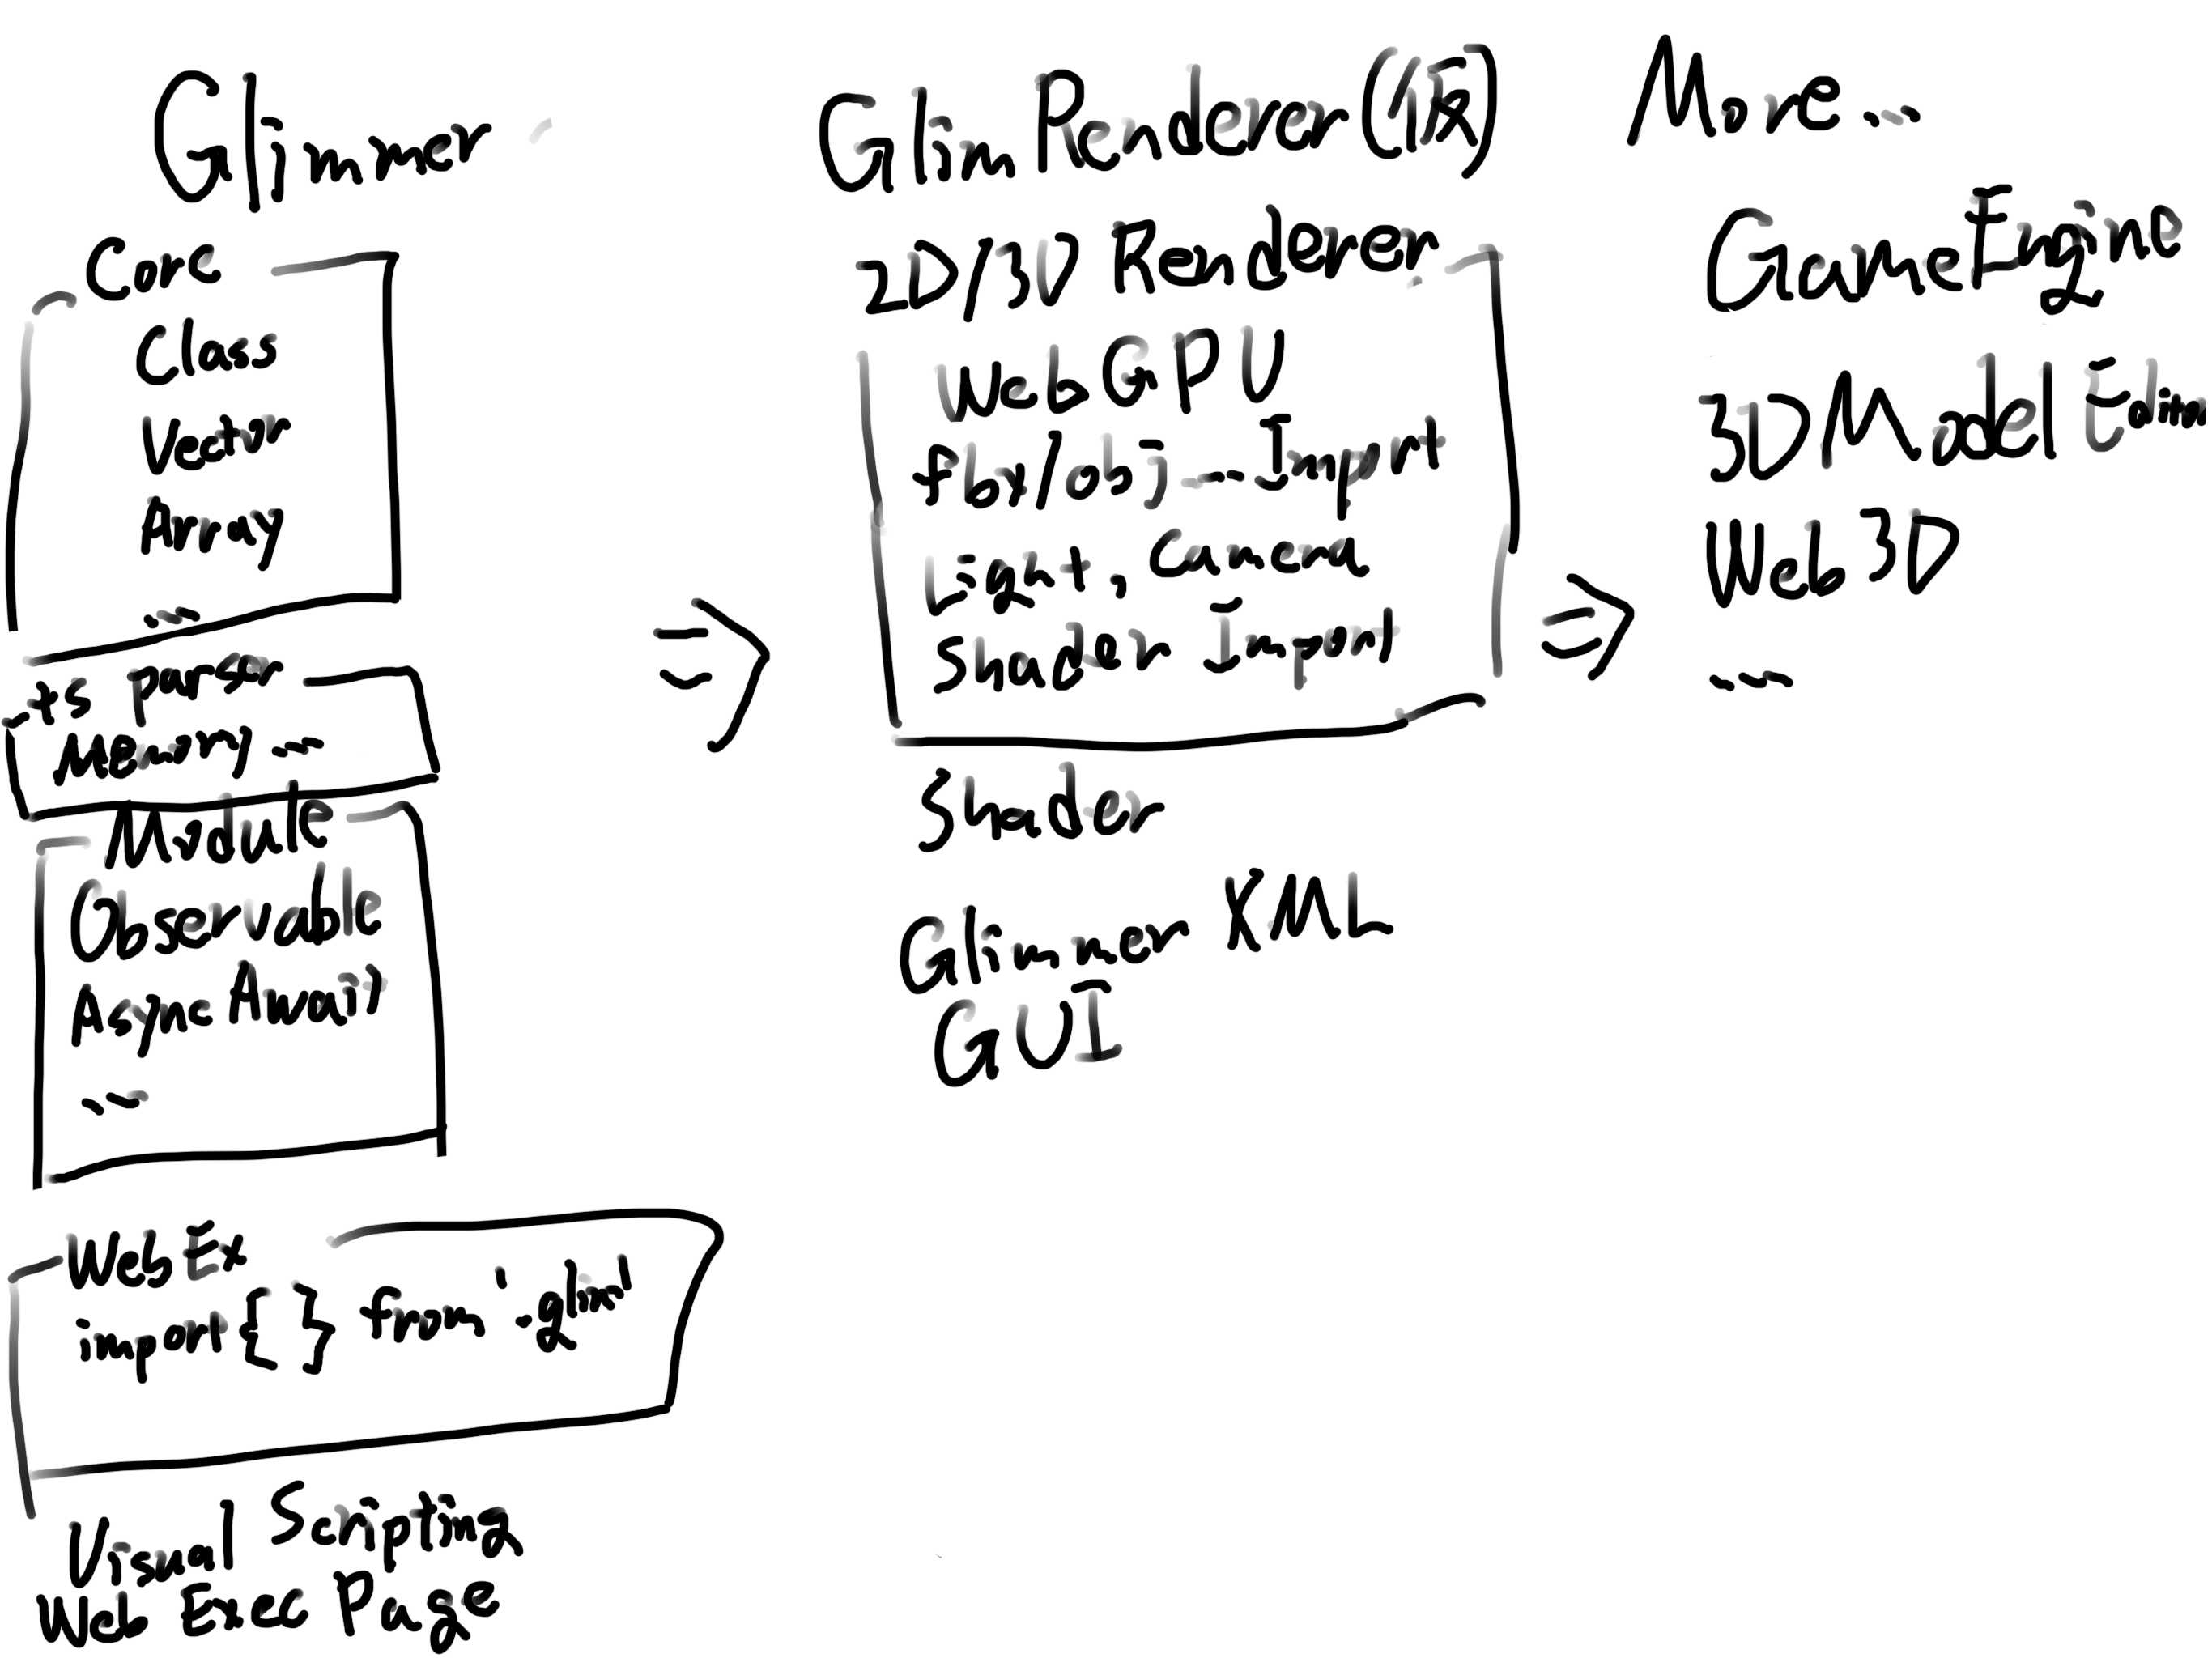 Glimmer
Core
Class
Vector
Array
...
ts parser
Memory ...
Module
Observable
Async Await
...
WebEx
import { } from '.glim'
Visual Scripting
Web Exec Page
GlimRenderer(仮)
2D/3D Renderer
WebGPU
fbx/obj ... Import
Light, Camera
Shader Import
Shader
Glimmer XML
GUI
More...
GameEngine
3DModel Editor
Web3D
...